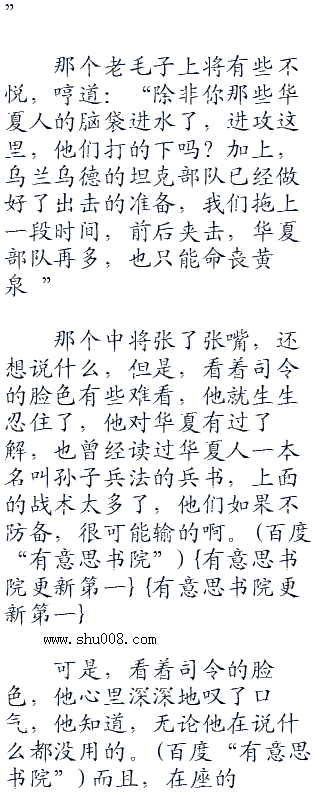 ”
那个老毛子上将有些不
悦，哼道：“除非你那些华
夏人的脑袋进水了，进攻这
里，他们打的下吗？加上，
乌兰乌德的坦克部队已经做
好了出击的准备，我们拖上
一段时间，前后夹击，华夏
部队再多，也只能命丧黄
泉 ”
那个中将张了张嘴，还
想说什么，但是，看着司令
的脸色有些难看，他就生生
忍住了，他对华夏有过了
解，也曾经读过华夏人一本
名叫孙子兵法的兵书，上面
的战术太多了，他们如果不
防备，很可能输的啊。(百度
“有意思书院”) {有意思书
院更新第一} {有意思书院更
新第一}
www.shu008.com
可是，看着司令的脸
色，他心里深深地叹了口
气，他知道，无论他在说什
么都没用的。(百度“有意思
书院”) 而且，在座的